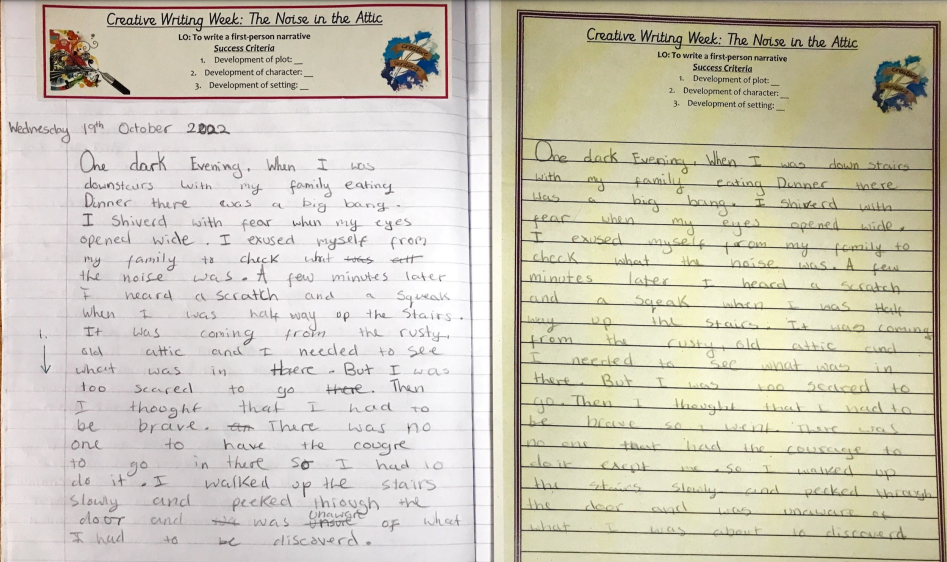 Creative Writing Week: The Noise in the Attic
LO: To write a first-person narrative
Success Criteria
1. Development of plot: __
2. Development of character: __
3. Development of setting: __
Wednesday 19th October 2022
One dark Evening. When I was
downstairs with my family eating
Dinner there was a big bang.
I Shiverd with fear when my eyes
opened wide. I exused myself from
my family to check what was all
the noise was. A few minutes later
I heard a scratch and a Squeak
when I was half way up the stairs.
1. It was coming from the rusty,
old attic and I needed to see
what was in there. But I was
too scared to go there. Then
I thought that I had to
be brave. an There was no
one to have the cougre
to go in there so I had to
do it. I walked up the stairs
slowly and peeked through the
unaware
door and was unsure of what
I had to be discoverd.
Creative Writing Week: The Noise in the Attic
LO: To write a first-person narrative
Success Criteria
1. Development of plot: __
2. Development of character: __
3. Development of setting: __
One dark Evening. When I was down stairs
with my family eating Dinner there
was a big bang. I Shiverd with
fear when my eyes opened wide.
I exused myself from my family to
check what the noise was. A few
minutes later I heard a scratch
and a sqeak when I was Half
way up the stairs. It was coming
from the rusty, old attic and
I needed to see what was in
there. But I was too scared to
go. Then I thought that I had to
be brave so I went. There was
no one that had the courage to
do it exept me. So I walked up
the stairs slowly and peeked through
the door and was unaware of
what I was about to discoverd